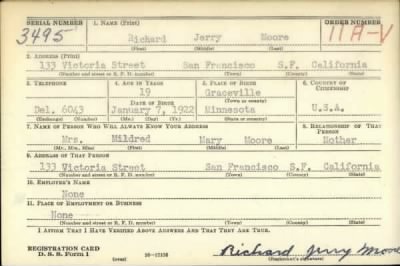 SERIAL NUMBER 1. NAME (Print) ORDER NUMBER
3495 Richard Jerry Moore 11A-V
(First) (Middle) (Last)
2. ADDRESS (Print)
133 Victoria Street San Francisco S.F. California
(Number and street or R. F. D. number) (Town) (County) (State)
3. TELEPHONE 4. AGE IN YEARS 5. PLACE OF BIRTH 6. COUNTRY OF CITIZENSHIP
19 Graceville
DATE OF BIRTH (Town or county)
Del. 6043 January 7, 1922 Minnesota U.S.A.
(Exchange) (Number) (Mo.) (Day) (Yr.) (State or country)
7. NAME OF PERSON WHO WILL ALWAYS KNOW YOUR ADDRESS 8. RELATIONSHIP OF THAT PERSON
Mrs. Mildred Mary Moore Mother
(Mr., Mrs., Miss) (First) (Middle) (Last)
9. ADDRESS OF THAT PERSON
133 Victoria Street San Francisco S.F. California
(Number and street or R. F. D. number) (Town) (County) (State)
10. EMPLOYER'S NAME
None
11. PLACE OF EMPLOYMENT OR BUSINESS
None
(Number and street or R. F. D. number) (Town) (County) (State)
I AFFIRM THAT I HAVE VERIFIED ABOVE ANSWERS AND THAT THEY ARE TRUE.
REGISTRATION CARD
D. S. S. Form 1 (over) Richard Jerry Moore
(Registrant's signature)